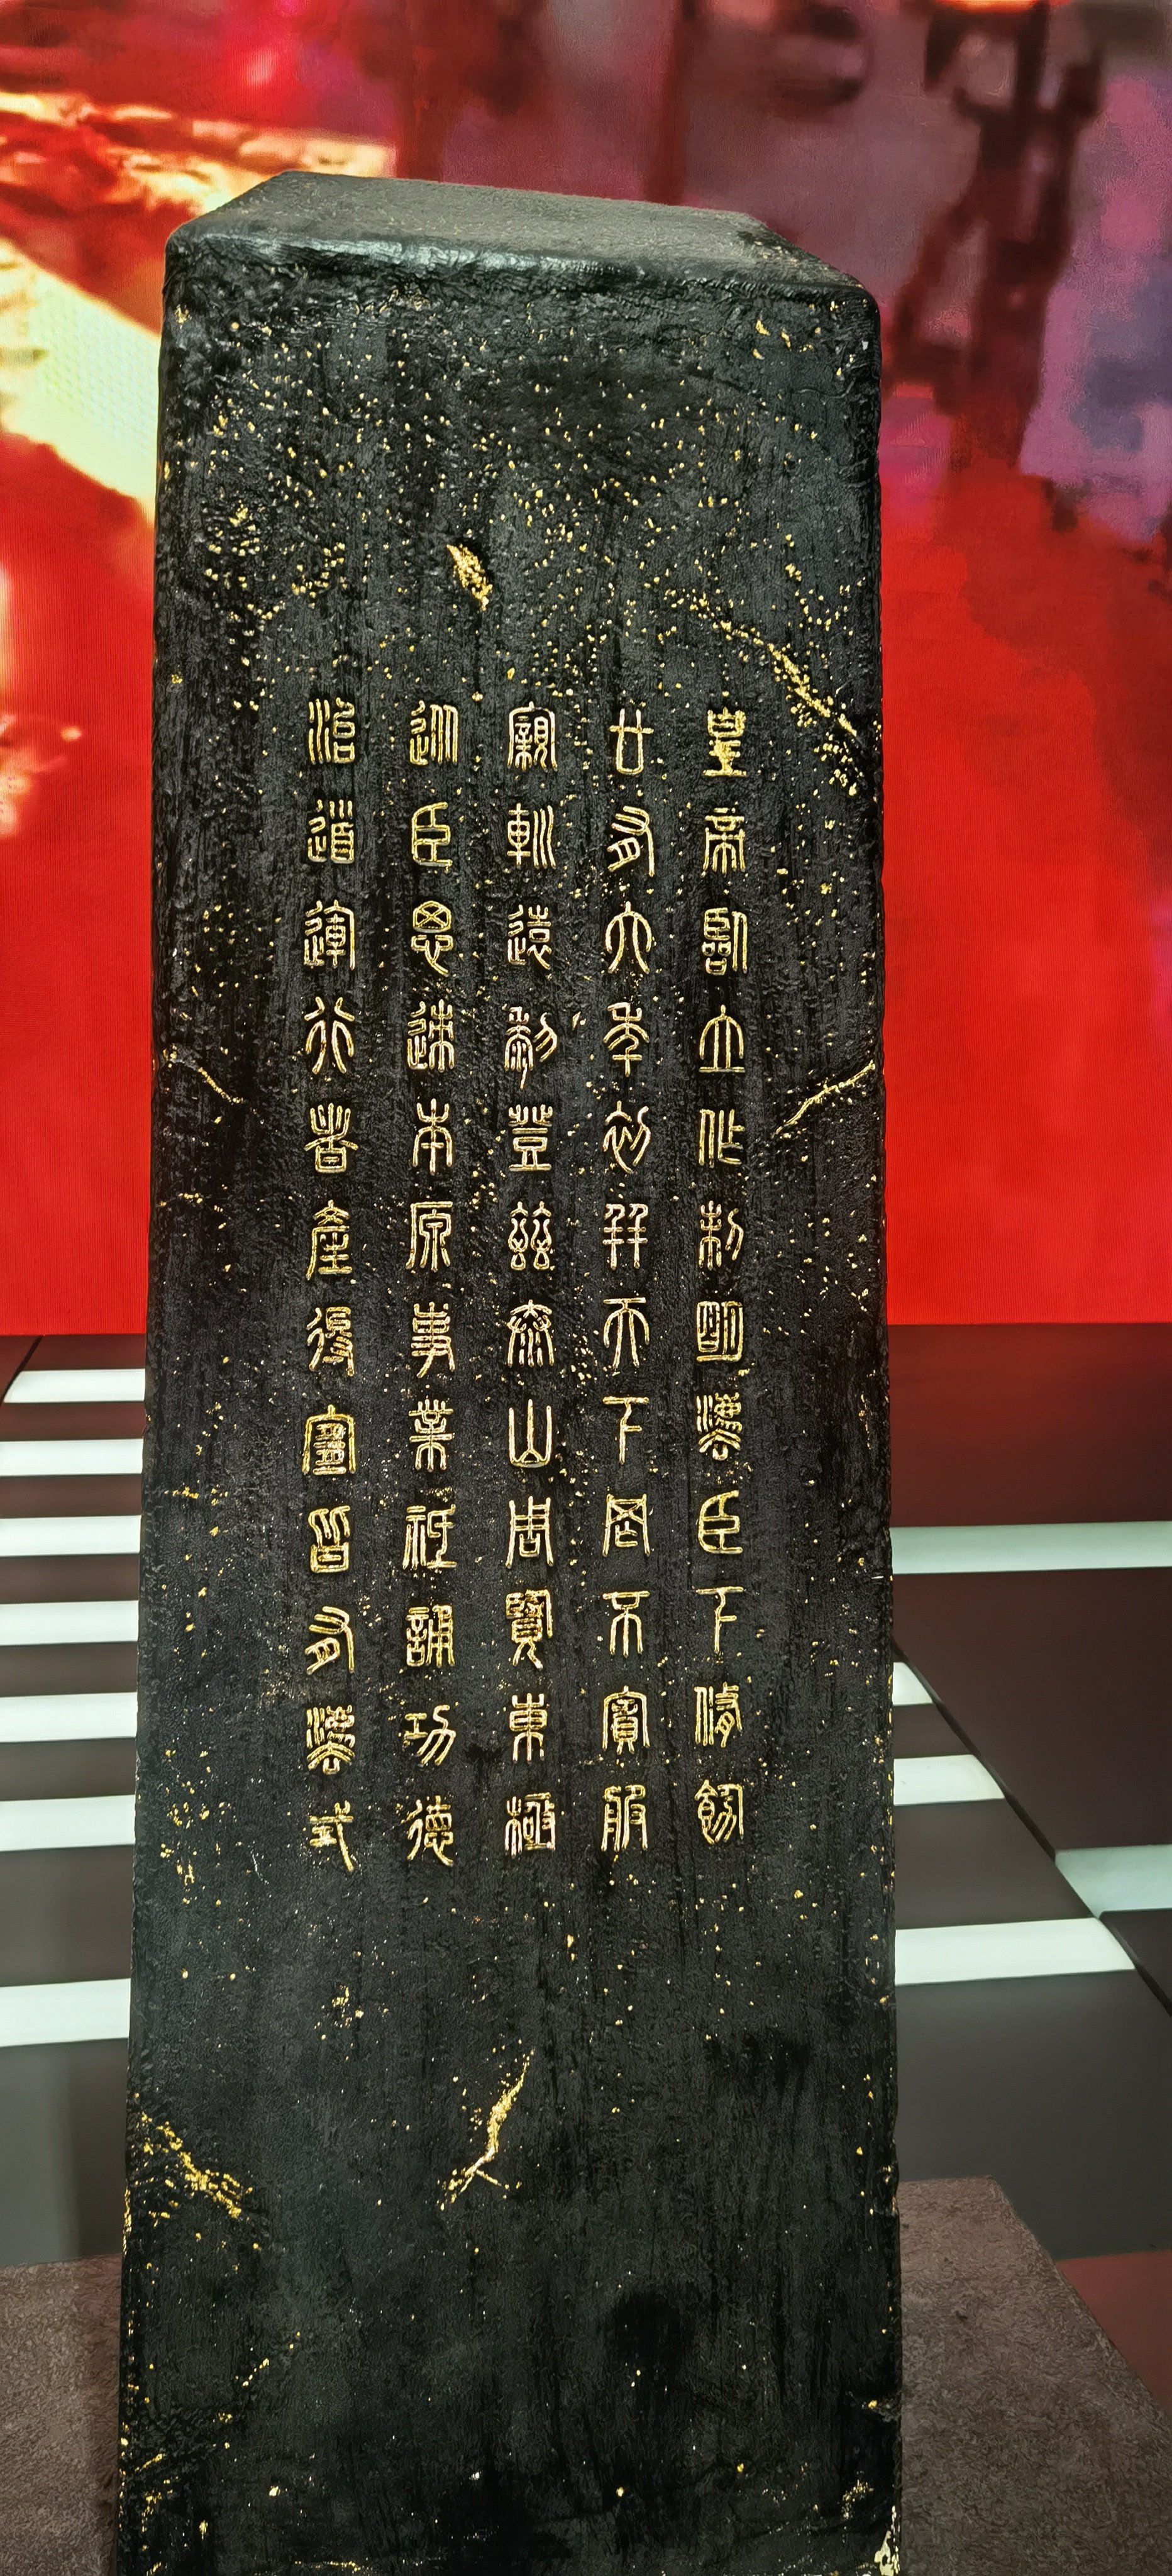 皇帝臨立作制明灋臣下脩飭
廿有六年初并天下罔不賓服
寴軔遠黎登茲泰山周覽東極
從臣思迹本原事業祗誦功德
治道運行者產得宜皆有灋式